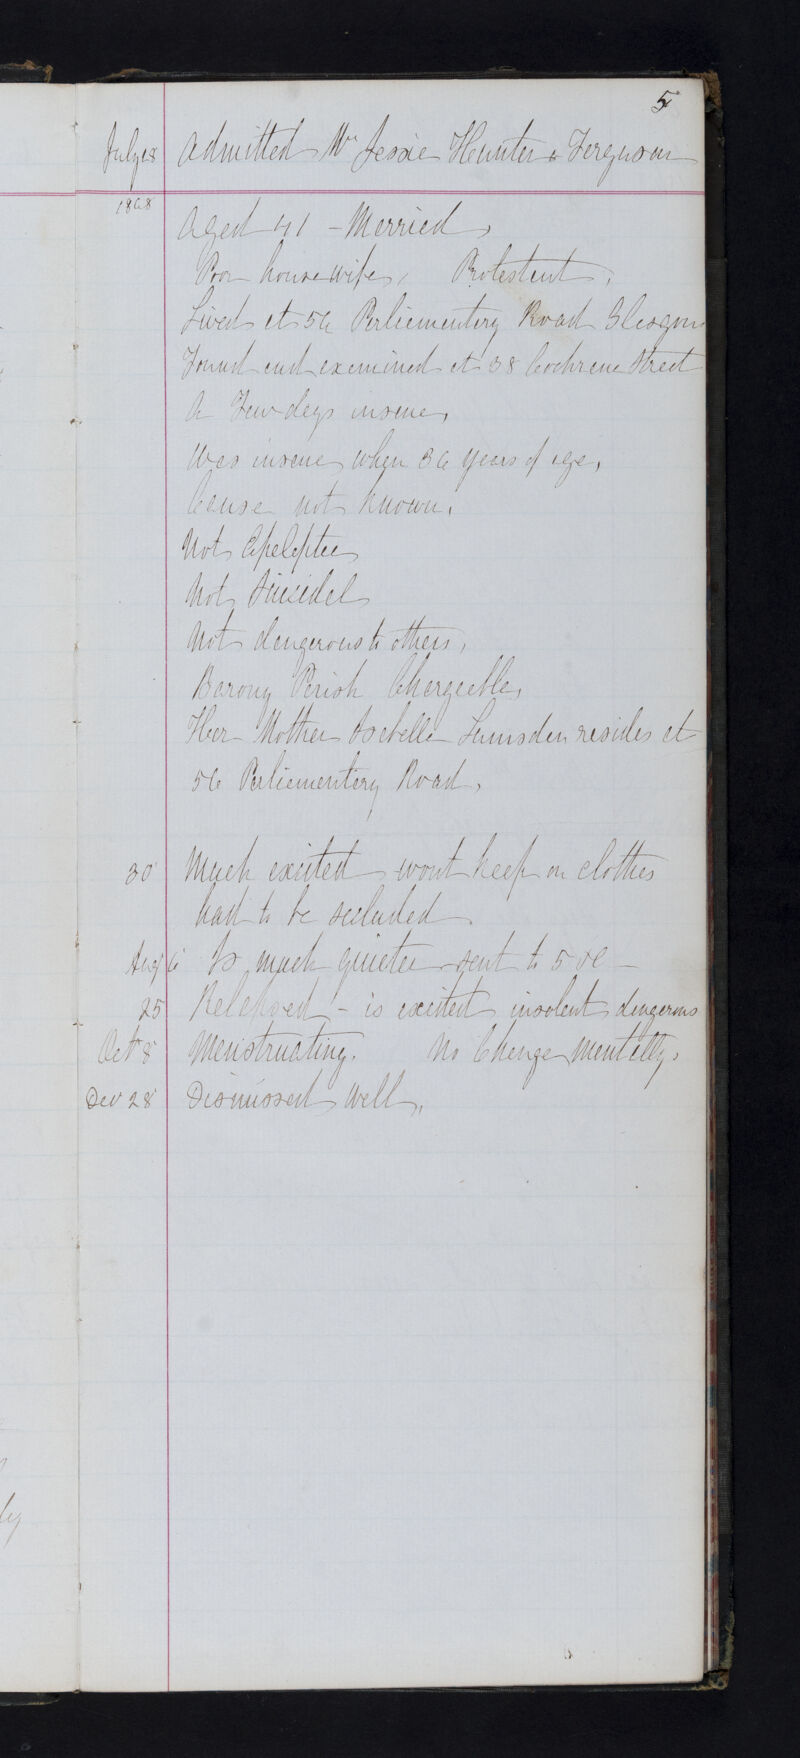 5
July 18 Admitted Mrs Jessie Hunter or Ferguson
1868
Aged 41 - Married,
Poor housewife, Protestant,
Lived at 56 Parliamentary Road Glasgow
Found and examined at 38 Cochrane Street
A Few days insane,
Was insane when 36 years of age,
Cause not known.
Not Epeleptic
Not Suicidal
Not dangerous to others,
Barony Parish Chargeable,
Her Mother Isabella Lumsden resides at
56 Parliamentary Road,
30 Much excited wont keep on clothes
had to be secluded
Aug 6 Is much quieter sent to 5
25 Relapsed - is excited insolent dangerous
Oct 8 Menstruating. No Change mentally.
Dec 28 Dismissed Well,